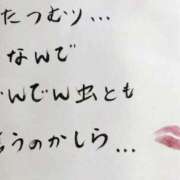 たつむり...
なんで
んでん虫とも
うのかしら...